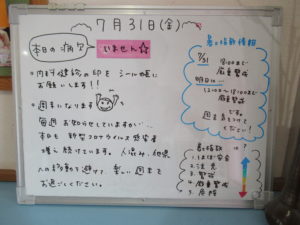 7月31日(金)
本日の病欠
いません☆
○ 内科健診の印を シール帳に
お願いします!!
○ 週末になります
毎週お知らせしていますが…
本日も 新型コロナウイルス感染者
増え続けています。人混み、他県
への移動を避けて 楽しい週末を
お過ごしください。
暑さ指数情報
7/31
厳重警戒
明日は…
厳重警戒
です。
気をつけて
ください!
暑さ指数 は?
1. ほぼ安全
2. 注意
3. 警戒
4. 厳重警戒
5. 危険